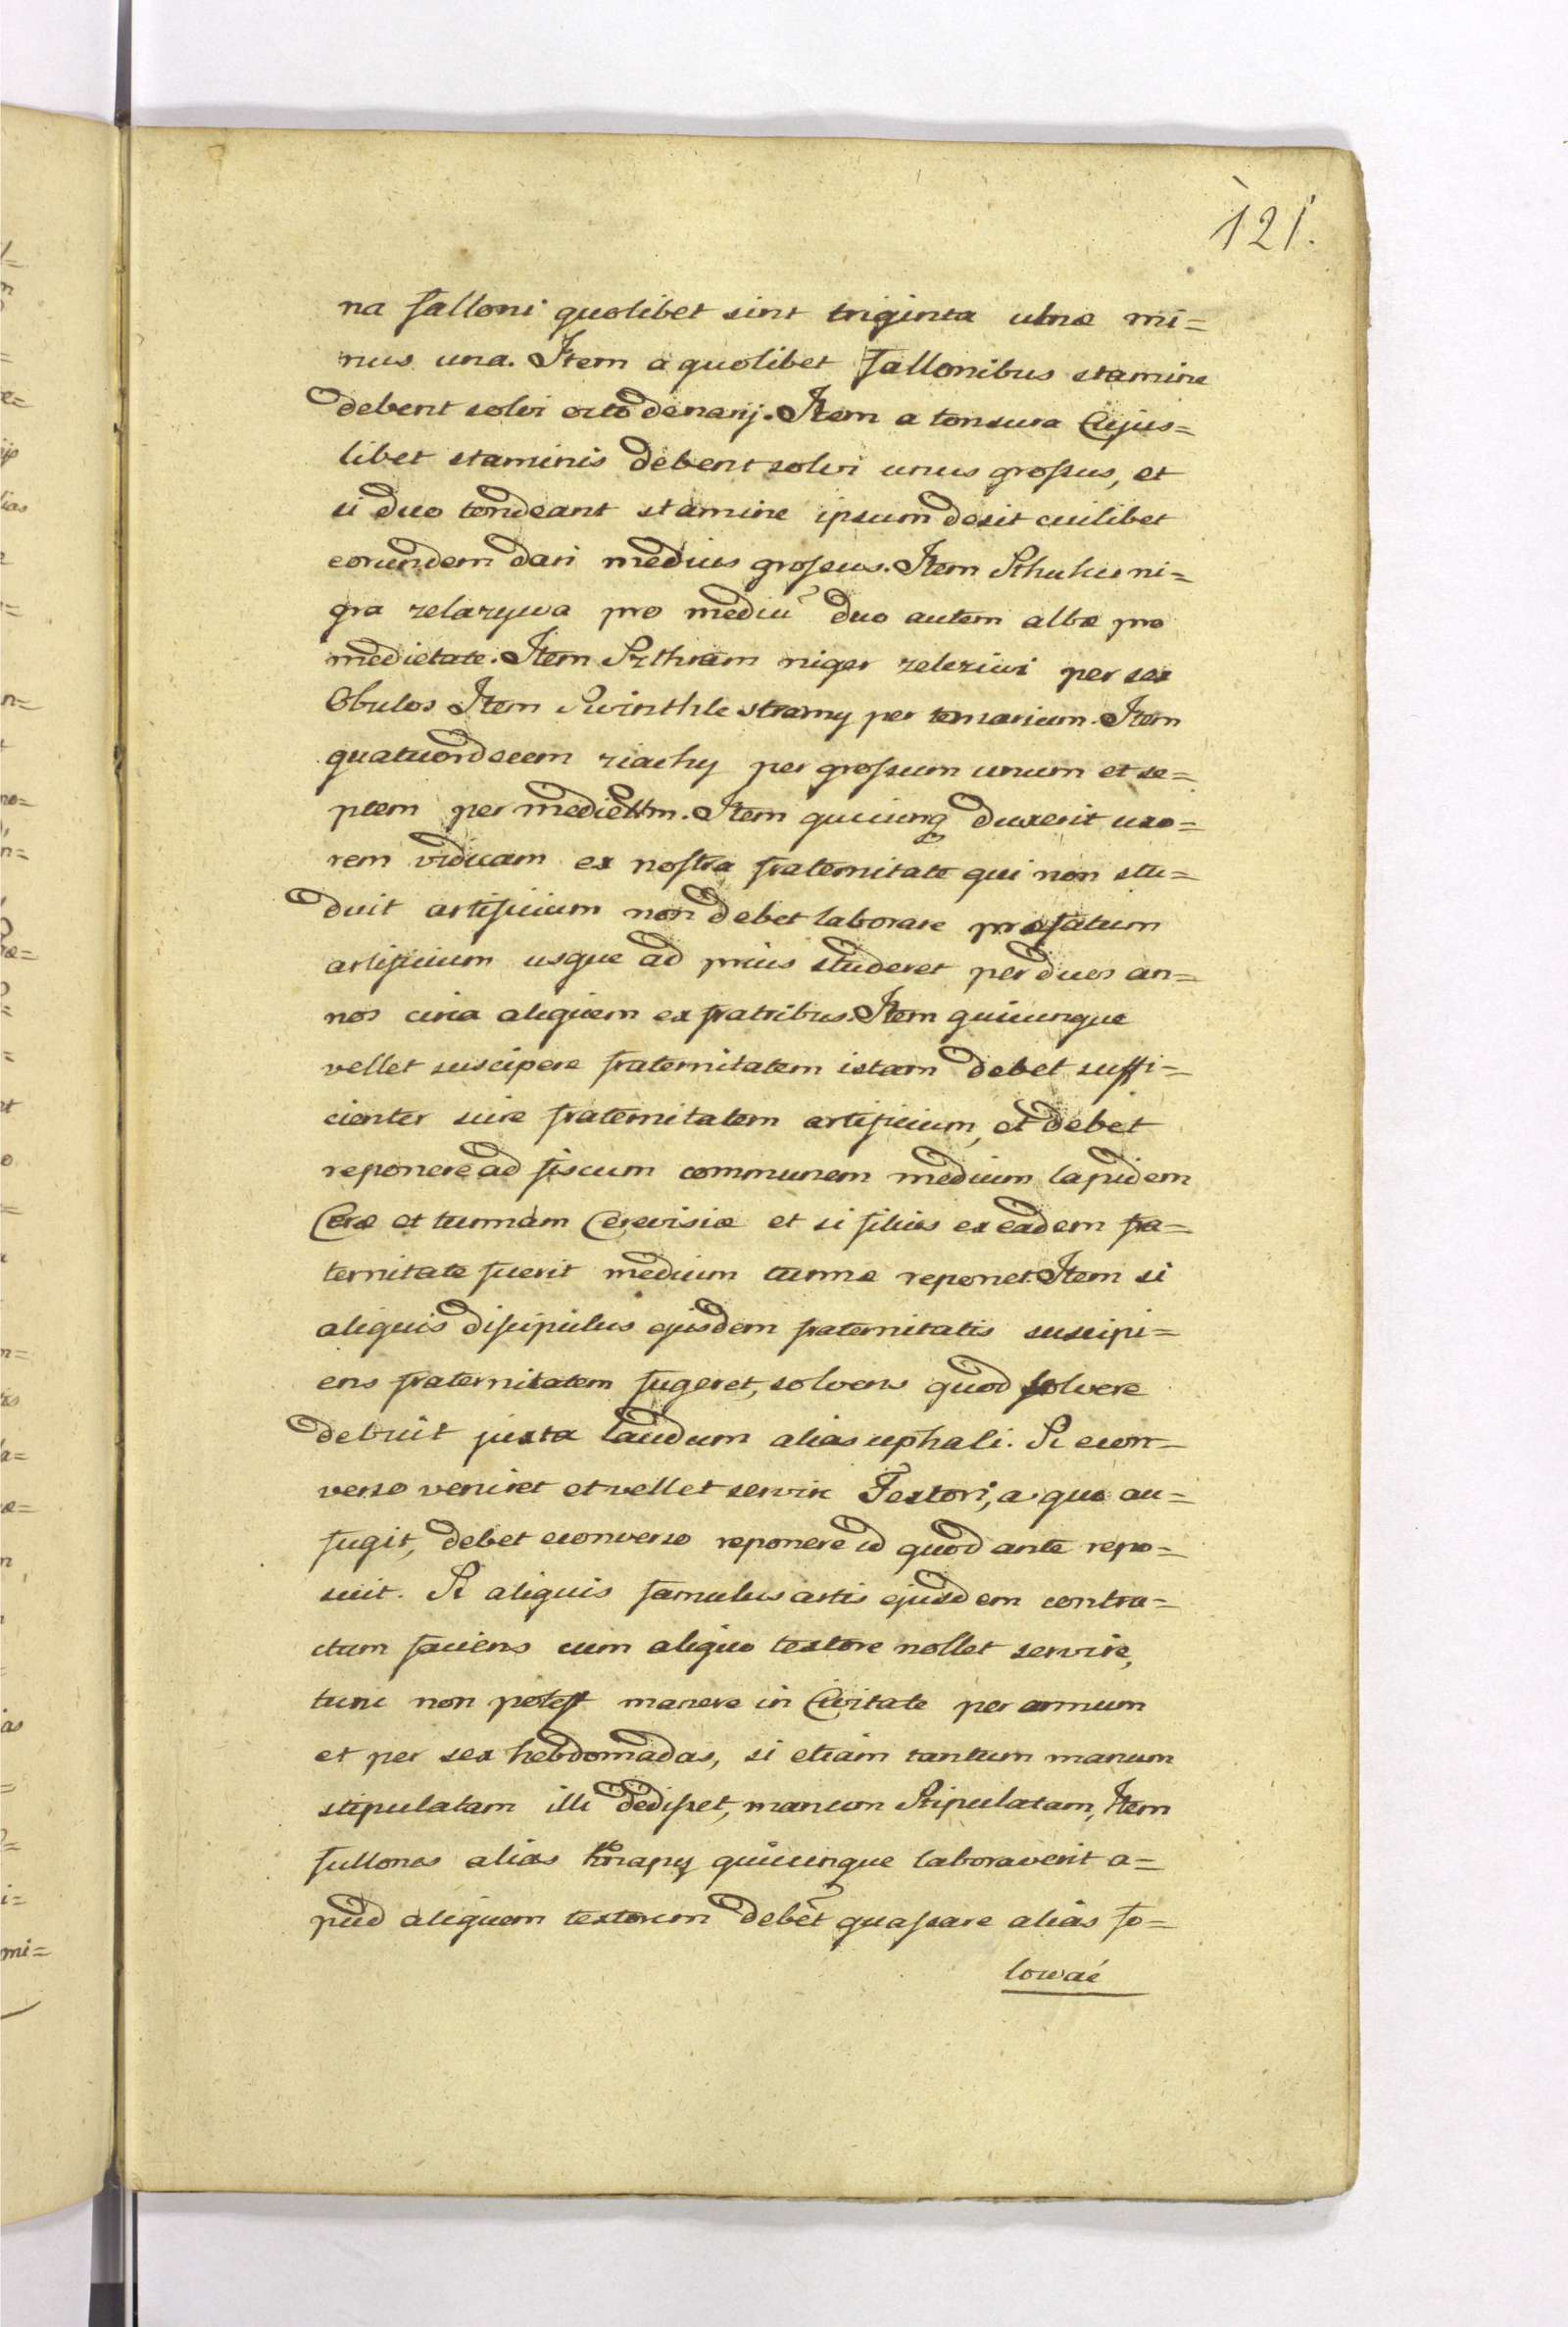 121.
na falloni quolibet sint triginta ulnæ mi=
nus una. Item a quolibet fallonibus stamine
debent solvi octo denarij. Item a tonsura Cujus=
libet staminis debent solvi unus grossus, et
si duo tondeant stamine ipsum desit cuilibet
eorundem dari medius grossus. Item Sthuha ni=
gra zelazywa pro mediu duo autem albæ pro
medietate. Item Szthram niger zeleziwi per sex
Obulos Item Swinthle stramy per ternarium. Item
quatuordecem ziachy per grossum unum et se=
ptem per mediettm. Item quicunq duxerit uxo=
rem viduam ex nostra fraternitate qui non stu=
duit artificium non debet laborare præfatum
artificium usque ad prius studeret per duos an=
nos circa aliquem ex fratribus. Item quicunque
vellet suscipere fraternitatem istam debet suffi=
cienter scire fraternitatem artificium, et debet
reponere ad fiscum communem medium lapidem
Ceræ et tunnam Cerevisiæ et si filius ex eadem fra=
ternitate fuerit medium tunnæ reponet. Item si
aliquis discipulus ejusdem fraternitatis suscipi=
ens fraternitatem fugeret, solvens quod solvere
debuit juxta laudum alias uphali. Si econ=
verso veniret et vellet servire Textori, a quo au=
fugit, debet econverso reponere id quod ante repo=
suit. Si aliquis famulus artis ejusdem contra=
ctum faciens cum aliquo textore nollet servire,
tunc non potest manere in Civitate per annum
et per sex hebdomadas, si etiam tantum manum
stipulatam illi dedisset, manum Stipulatam, Item
fullones alias knapy quicunque laboraverit a=
pud aliquem textorem debet quassare alias fo=
lować